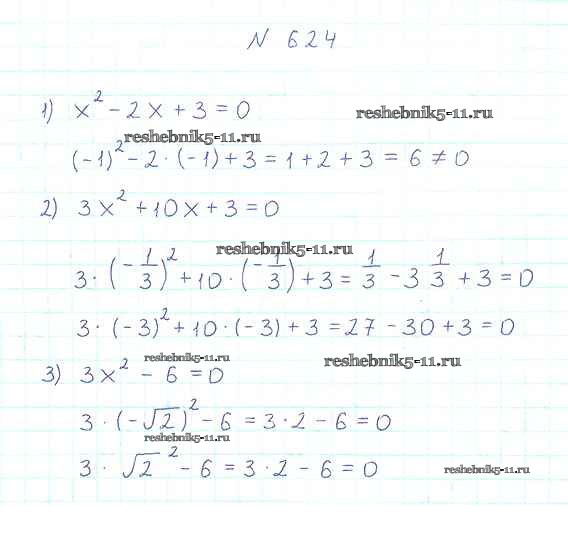 N 624
1) x² - 2x + 3 = 0
reshebnik5-11.ru
reshebnik5-11.ru
(-1)² - 2 · (-1) + 3 = 1 + 2 + 3 = 6 ≠ 0
2) 3x² + 10x + 3 = 0
reshebnik5-11.ru
3 · (-1/3)² + 10 · (-1/3) + 3 = 1/3 - 3 1/3 + 3 = 0
3 · (-3)² + 10 · (-3) + 3 = 27 - 30 + 3 = 0
reshebnik5-11.ru
reshebnik5-11.ru
3) 3x² - 6 = 0
3 · (-√2)² - 6 = 3 · 2 - 6 = 0
reshebnik5-11.ru
3 · √2² - 6 = 3 · 2 - 6 = 0
reshebnik5-11.ru